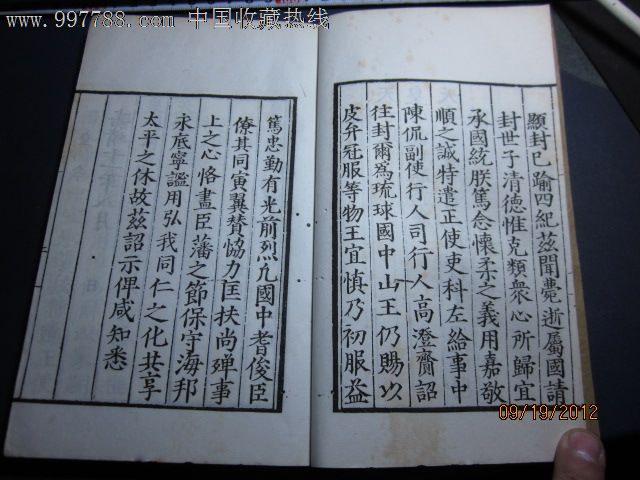 www.997788.com 中国收藏热线
顯封已踰四紀茲聞薨逝屬國請
封世子清德惟克類衆心所歸宜
承國統朕篤念懷柔之義用嘉敬
順之誠特遣正使吏科左給事中
陳侃副使行人司行人高澄賫詔
往封爾爲琉球國中山王仍賜以
皮弁冠服等物王宜慎乃初服益
篤忠勤有光前烈凢國中耆俊臣
僚其同寅翼賛恊力匡扶尚殫事
上之心恪盡臣藩之節保守海邦
永底寧謐用弘我同仁之化共享
太平之休故茲詔示俾咸知悉
09/19/2012